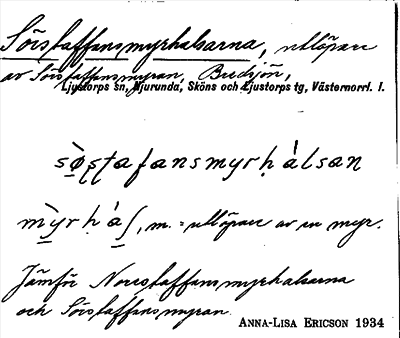 Sörstaffansmyrhalsarna, utlöpare
av Sörstaffansmyran, Bredsjön,
Ljustorps sn, Njurunda, Sköns och Ljustorps tg, Västernorrl. l.
sø̀ʂʈafansmyrḥàlsan
mỳrḥàʃ, m. = utlöpare av en myr.
Jämför Norrstaffansmyrhalsarna
och Sörstaffansmyran.
ANNA-LISA ERICSON 1934